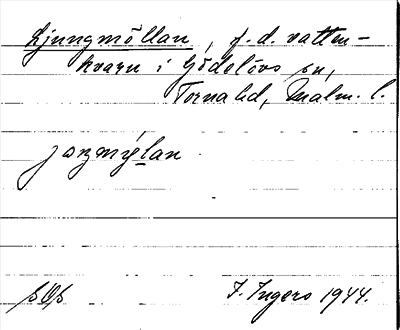 Ljungmöllan, f.d. vatten-
kvarn i Gödelövs sn,
Torna hd, Malm. l.
joŋmýlan
I. Ingers 1944.